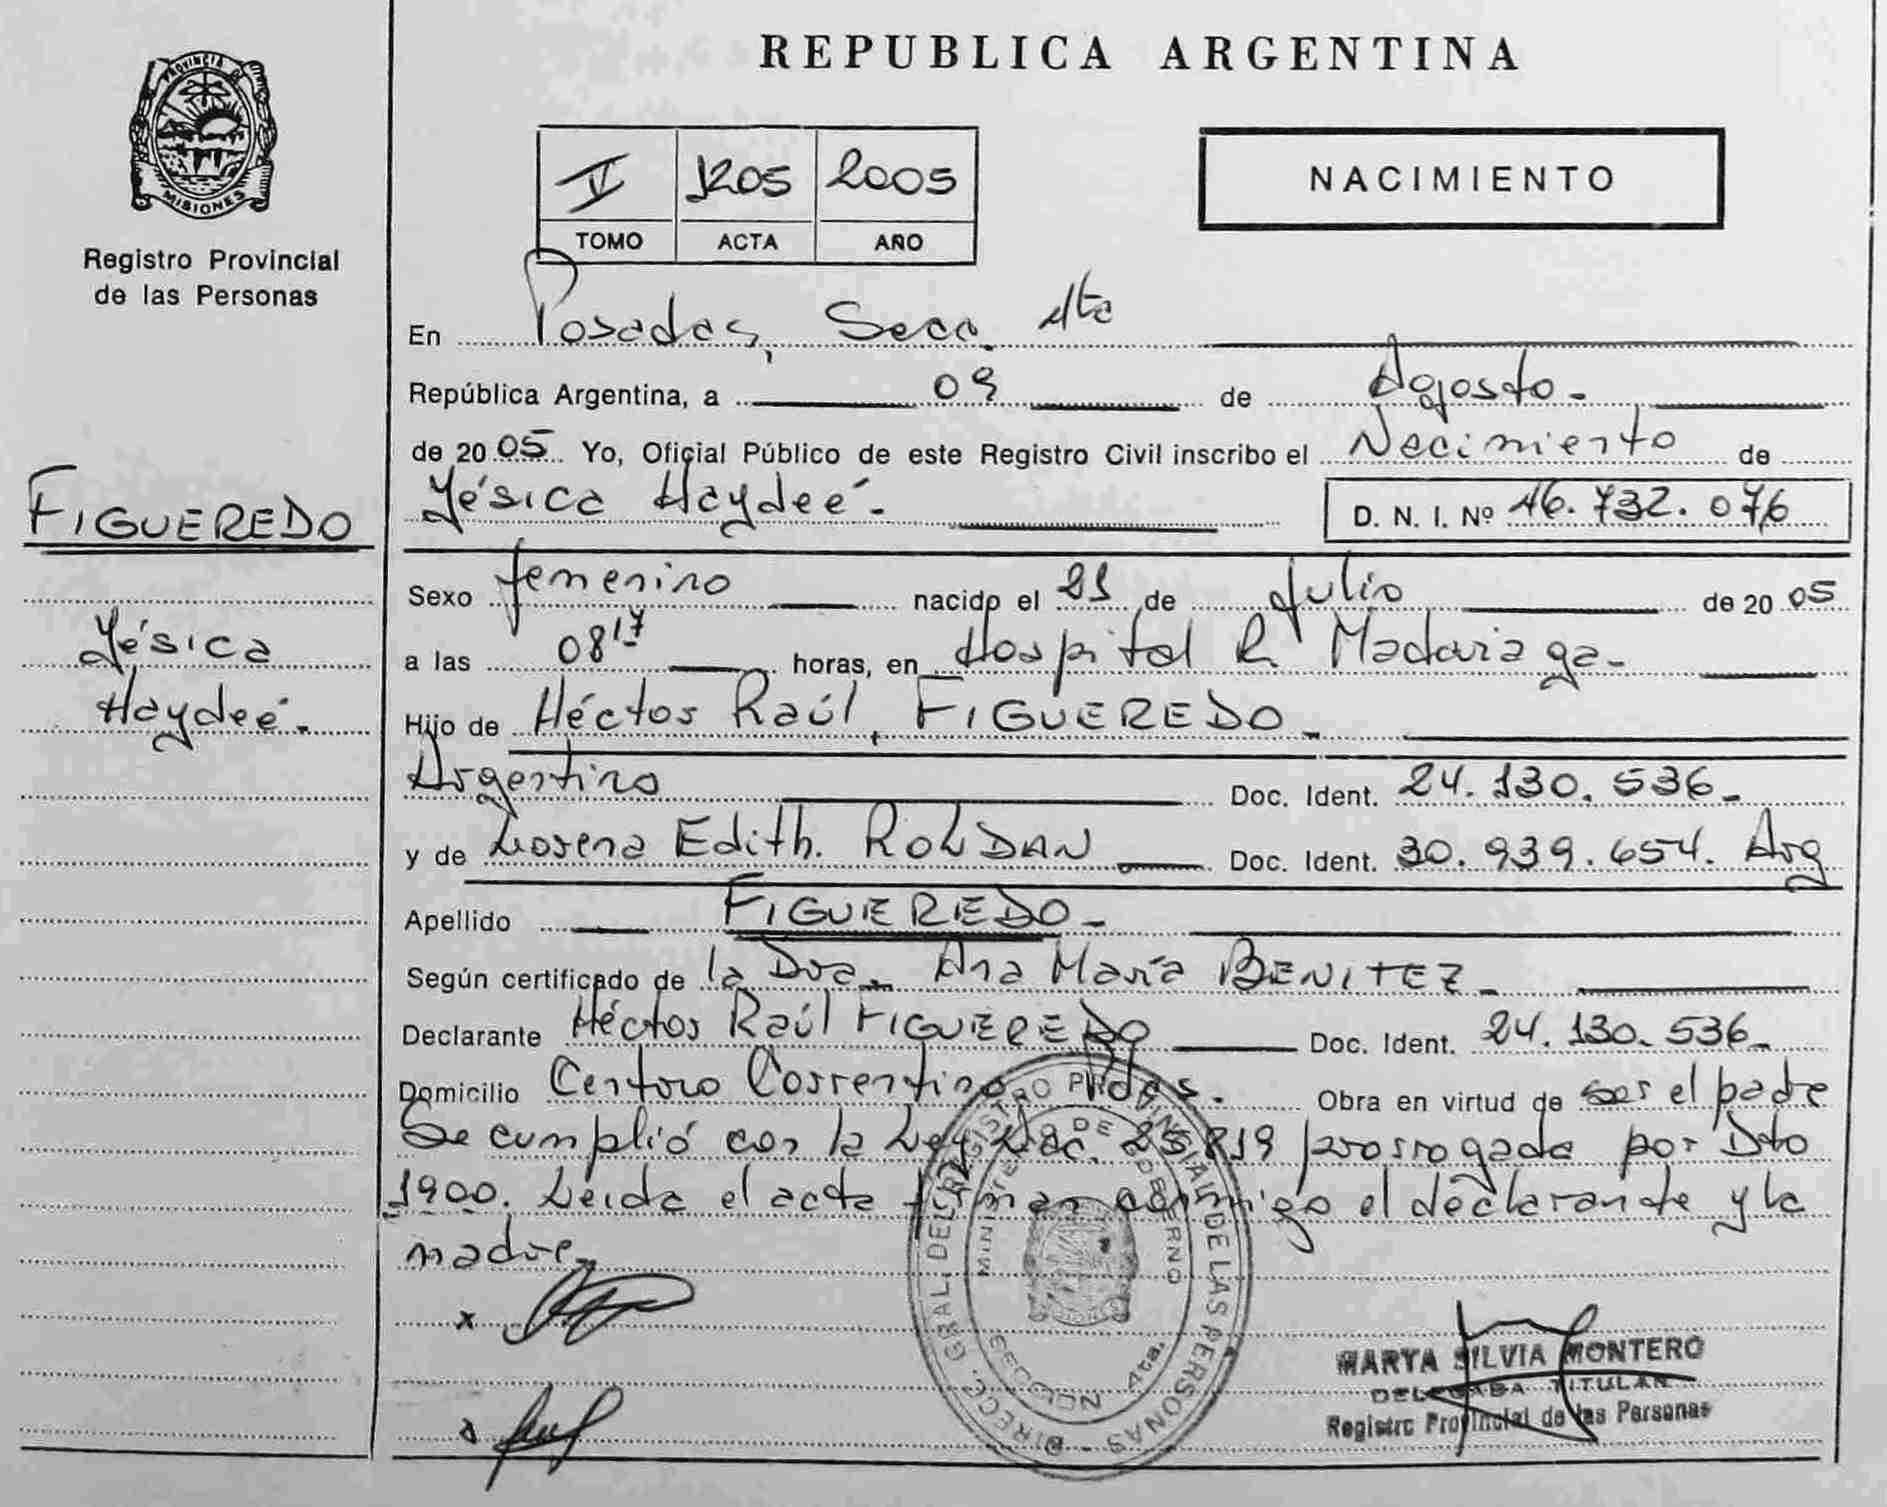 REPUBLICA ARGENTINA
PROVINCIA DE
MISIONES
Registro Provincial
de las Personas
V 1205 2005
TOMO ACTA AÑO
NACIMIENTO
En Posadas, Secc. 4ta
República Argentina, a 09 de Agosto.-
de 2005 Yo, Oficial Público de este Registro Civil inscribo el Nacimiento de
Yésica Haydeé.- D. N. I. Nº 46.732.076
FIGUEREDO
Yésica
Haydeé.-
Sexo femenino nacido el 21 de Julio de 2005
a las 08 17 horas, en Hospital R. Madariaga-
Hijo de Héctor Raúl, FIGUEREDO-
Argentino Doc. Ident. 24.130.536-
y de Lorena Edith. ROLDAN Doc. Ident. 30.939.654. Arg
Apellido FIGUEREDO-
Según certificado de la Dra. Ana María BENITEZ-
Declarante Héctor Raúl FIGUEREDO Doc. Ident. 24.130.536-
Domicilio Centro Correntino Pdas. Obra en virtud de ser el padre
Se cumplió con la Ley Nac. 25.819 prorrogada por Dto
1900. Leída el acta firman conmigo el declarante y la
madre-
x
DIRECC. GRAL. DEL REGISTRO PROVINCIAL DE LAS PERSONAS
MINISTERIO DE GOBIERNO
SECCION 4ta.
MARTA SILVIA MONTERO
DELEGADA TITULAR
Registro Provincial de las Personas